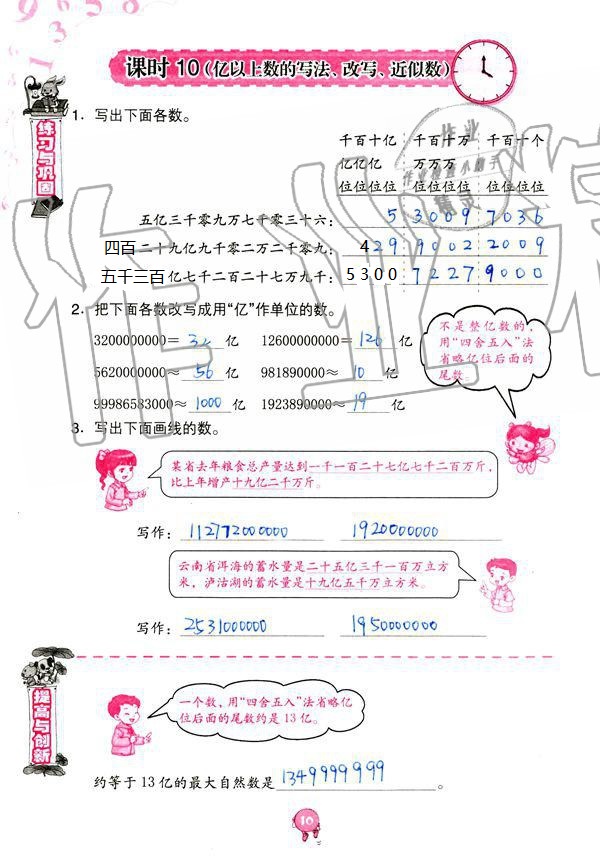 课时10(亿以上数的写法、改写、近似数)
练习与巩固
1. 写出下面各数。
千百十亿 千百十万 千百十个
亿亿亿 万万万
位位位位 位位位位 位位位位
五亿三千零九万七千零三十六: 5 3009 7036
四百二十九亿九千零二万二千零九: 429 9002 2009
五千三百亿七千二百二十七万九千: 5300 7227 9000
2. 把下面各数改写成用“亿”作单位的数。
3200000000= 32 亿 12600000000= 126 亿
5620000000≈ 56 亿 981890000≈ 10 亿
99986583000≈ 1000 亿 1923890000≈ 19 亿
不是整亿数的,
用“四舍五入”法
省略亿位后面的
尾数。
3. 写出下面画线的数。
某省去年粮食总产量达到一千一百二十七亿七千二百万斤,
比上年增产十九亿二千万斤。
写作: 112772000000 1920000000
云南省洱海的蓄水量是二十五亿三千一百万立方
米,泸沽湖的蓄水量是十九亿五千万立方米。
写作: 2531000000 1950000000
提高与创新
一个数,用“四舍五入”法省略亿
位后面的尾数约是13亿。
约等于13亿的最大自然数是 1349999999 。
10